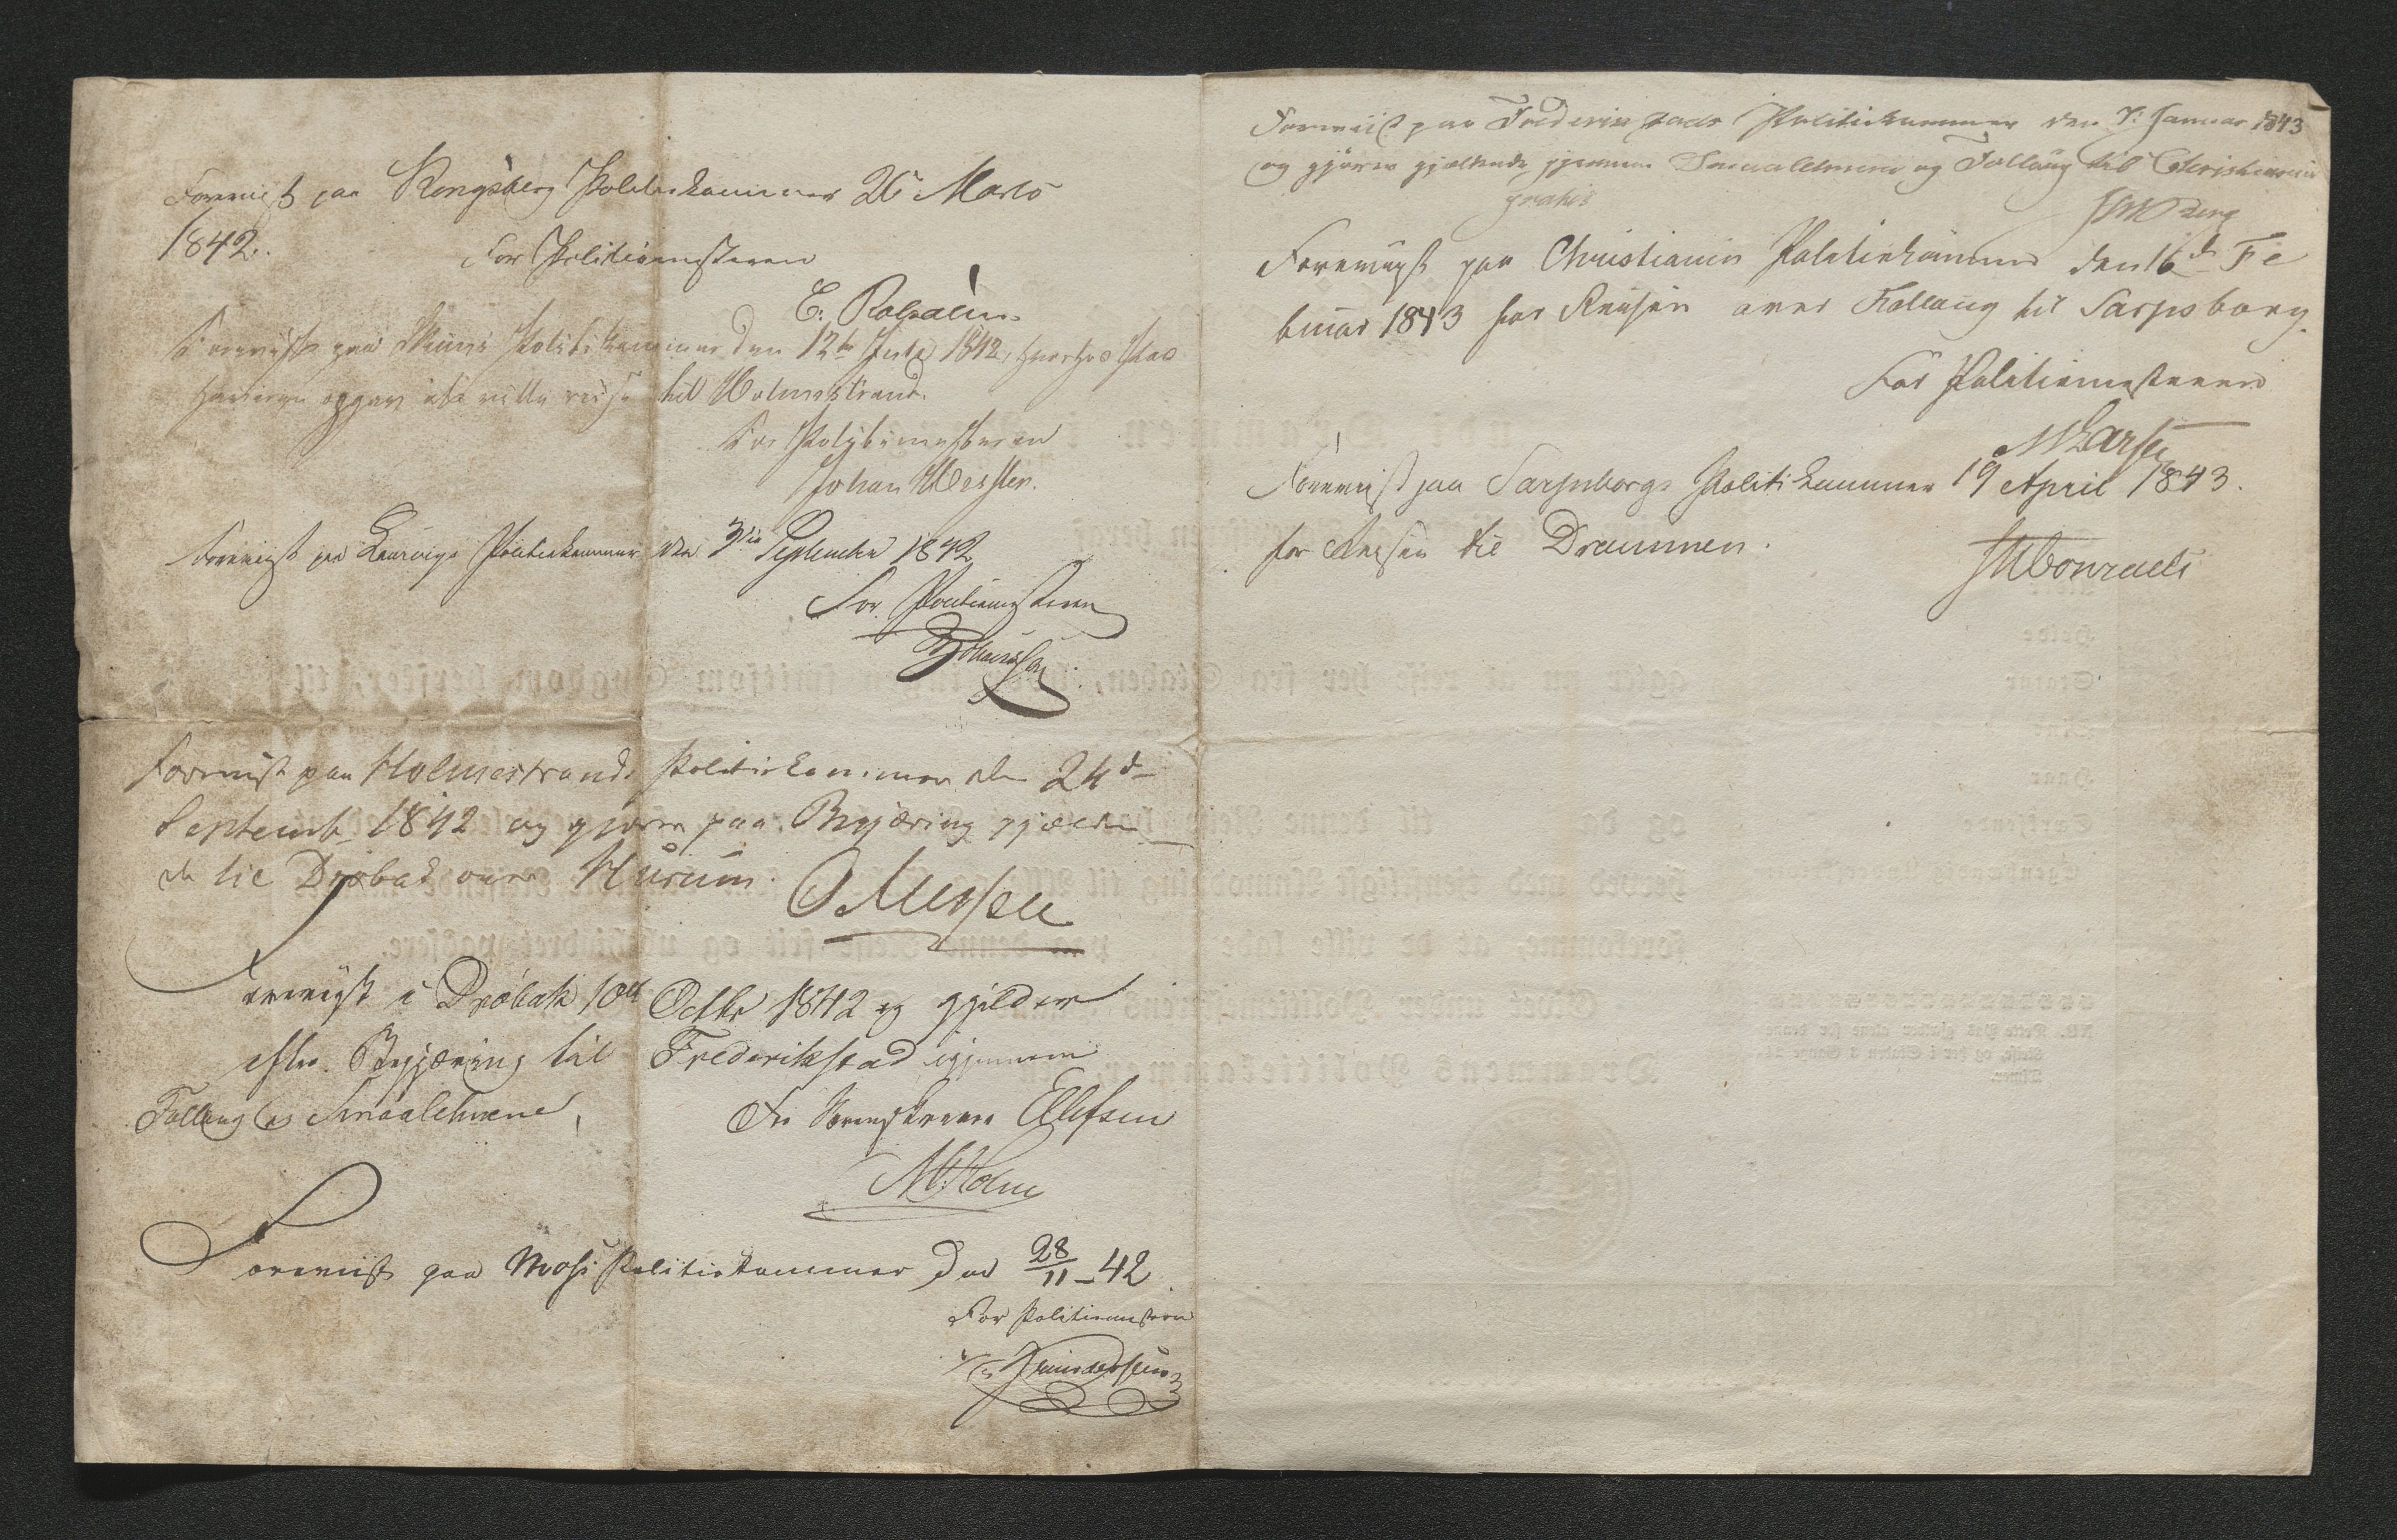 Foreviist paa Kongsberg Politiekammer 26 Marts
1842.
For Politiemesteren
E. Robsahm
Foreviist paa Skiens Politikammer den 12te Juli 1842,
opgav at ville reise til Holmestrand.
For Politimesteren
Johan Wessler.
Foreviist paa Laurvigs Politiekammer den 3die September 1842
For Politiemesteren
Foreviist paa Holmestrands Politiekammer den 24de
Septemb 1842 og gjøres paa Begjæring gjælden
de til Drøbak over Hurum.
Foreviist i Drøbak 10de Octbr 1842 og gjelder
efter Begjæring til Frederikstad igjennem
Follaug og Smaalehnene,
For Sorenskriver Ellefsen
M. Holm
Foreviist paa Moss Politiekammer den 28/11 - 42
For Politiemesteren
Foreviist paa Frederiksstads Politiekammer den 7: Januar 1843
og gjøres gjældende gjennem Smaalehnene og Follaug til Christiania
gratis
Berg
Foreviist paa Christiania Politiekammer den 16de Fe
bruar 1843 for Reisen over Follaug til Sarpsborg.
For Politiemesteren
M Larsen
Foreviist paa Sarpsborgs Politikammer 19 April 1843.
for Reisen til Drammen.